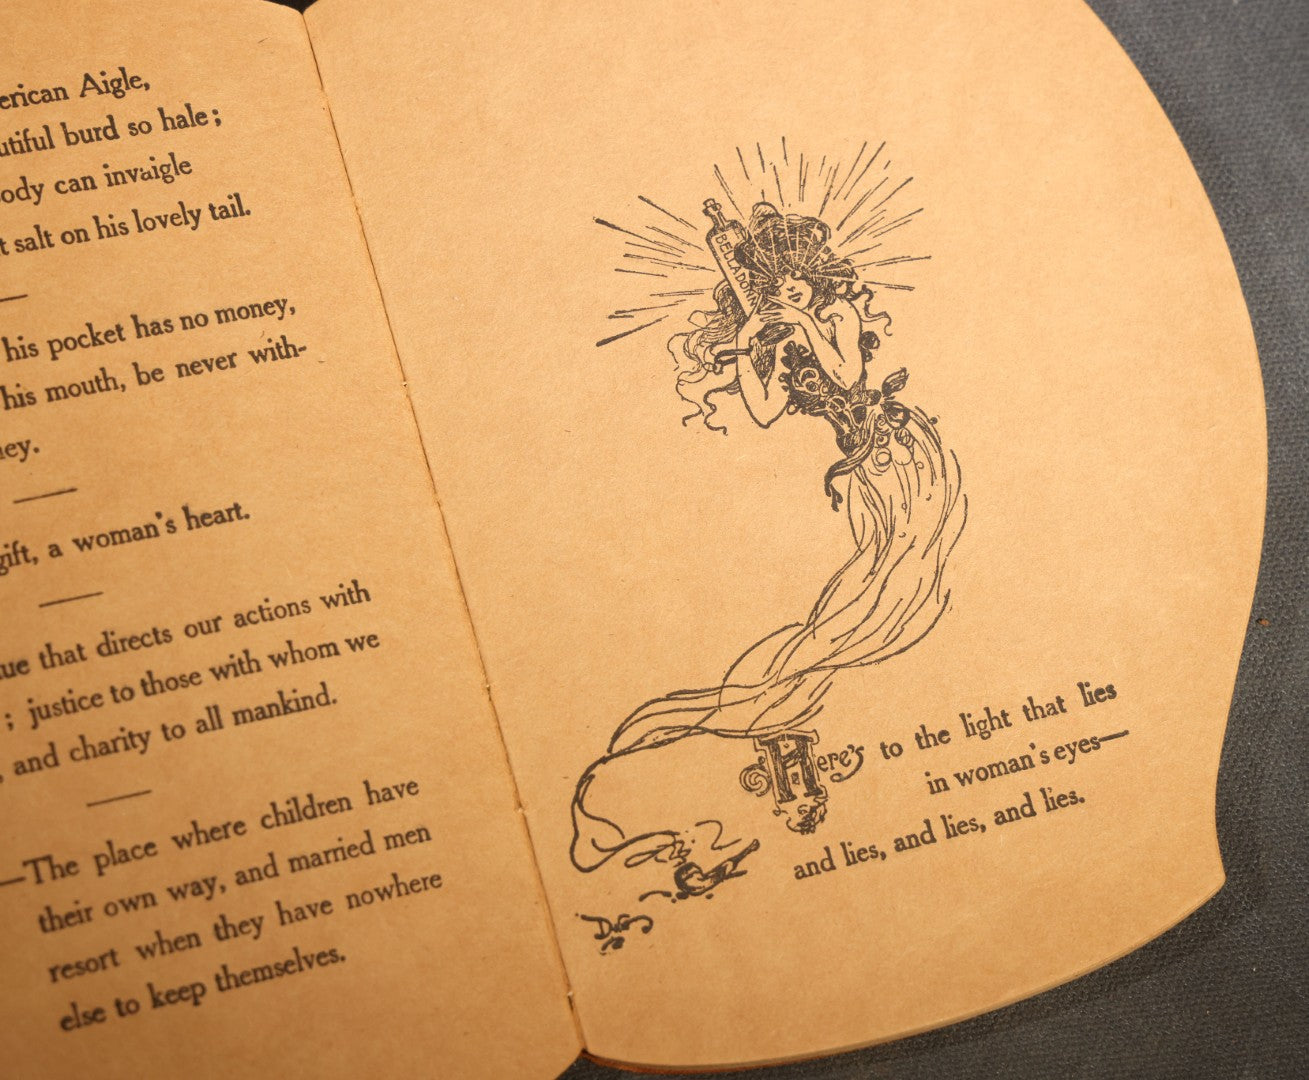 erican Aigle,
utiful burd so hale;
ody can invaigle
t salt on his lovely tail.
his pocket has no money,
his mouth, be never with-
ey.
gift, a woman's heart.
ue that directs our actions with
; justice to those with whom we
, and charity to all mankind.
—The place where children have
their own way, and married men
resort when they have nowhere
else to keep themselves.
BELLADON
Here's to the light that lies
in woman's eyes—
and lies, and lies, and lies.